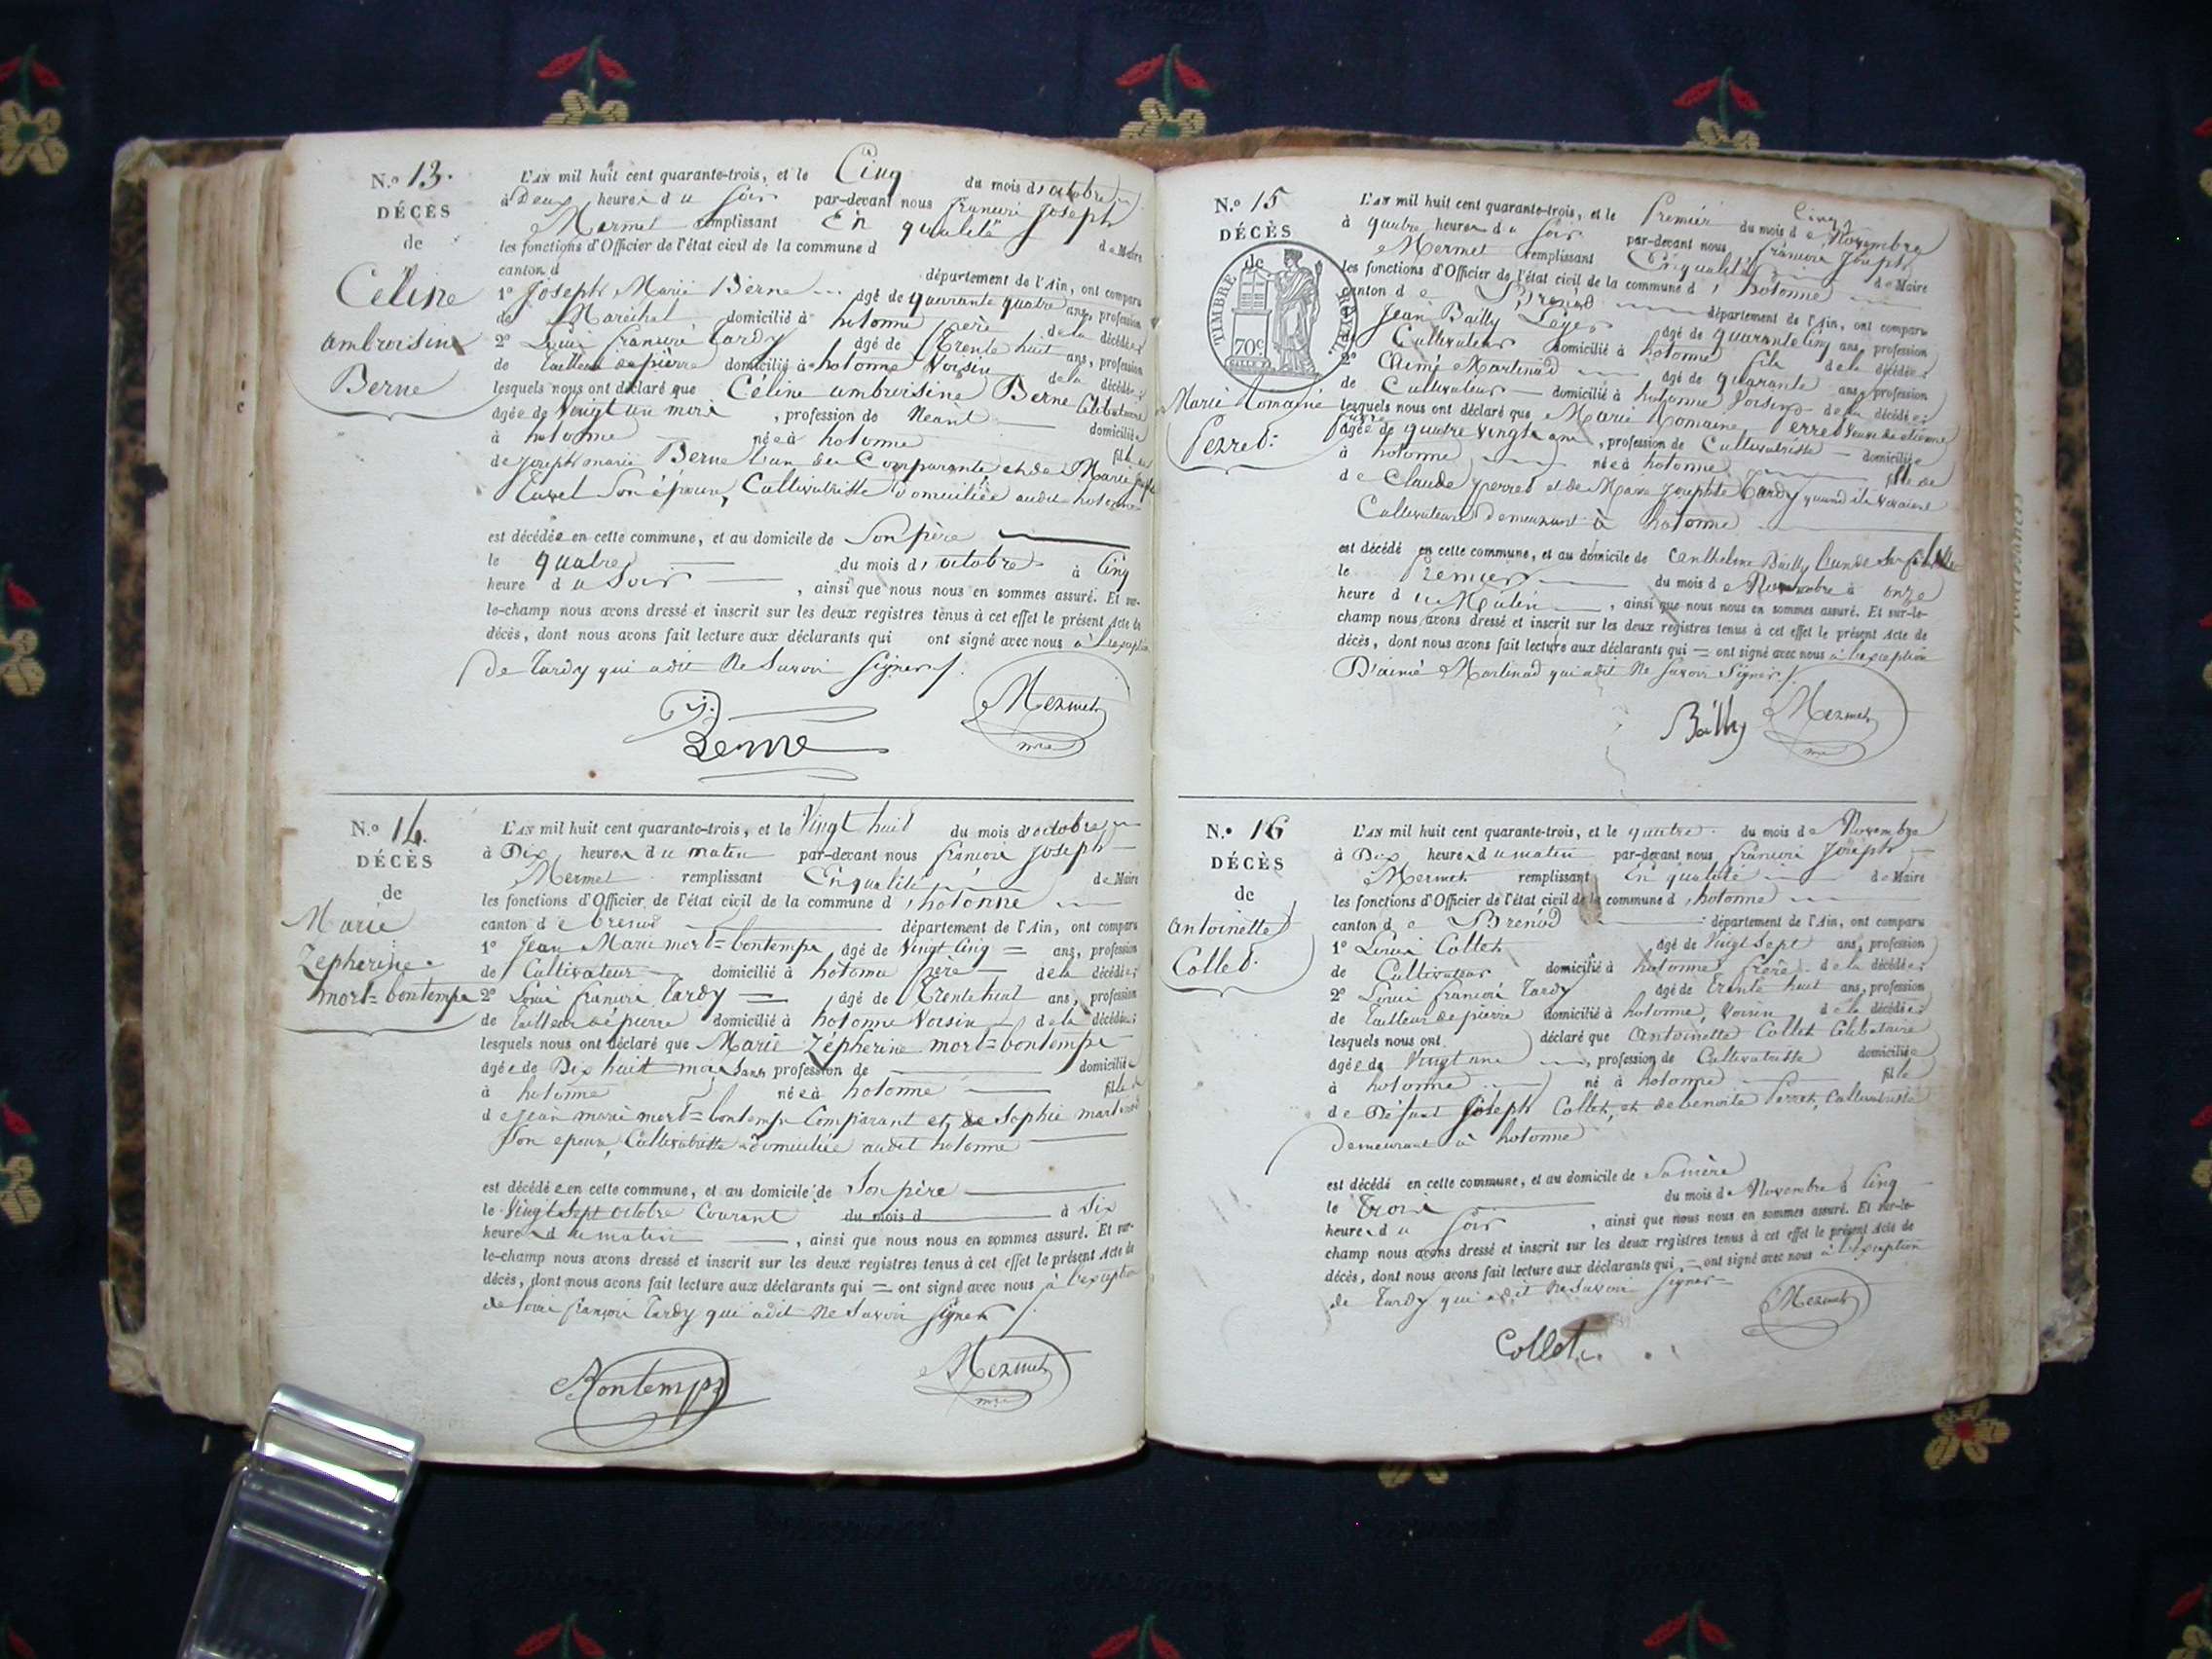 N.º 13.
DÉCÈS
de
Céline
ambroisine
Berne
L'AN mil huit cent quarante-trois, et le Cinq du mois d'octobre
à Deux heures du soir par-devant nous françois Joseph
Mermet remplissant En qualité de Maire
les fonctions d'Officier de l'état civil de la commune d
canton d département de l'Ain, ont comparu
1º Joseph Marie Berne âgé de quarante quatre ans, profession
de Maréchal domicilié à hotonne père de la décédée;
2º Louis françois Tardy âgé de Trente huit ans, profession
de tailleur de pierre domicilié à hotonne Voisin de la décédée;
lesquels nous ont déclaré que Céline ambroisine Berne Célibataire
âgée de Vingt un mois, profession de Néant domiciliée
à hotonne née à hotonne fille
de Joseph marie Berne l'un des Comparants et de Marie
son épouse, Cultivatrice domiciliée audit hotonne
est décédée en cette commune, et au domicile de Son père
le quatre du mois d'octobre à Cinq
heure du Soir, ainsi que nous nous en sommes assuré. Et sur-
le-champ nous avons dressé et inscrit sur les deux registres tenus à cet effet le présent Acte de
décès, dont nous avons fait lecture aux déclarants qui ont signé avec nous à l'exception
de Tardy qui a dit Ne Savoir signer
J.
Berne
Mermet
mre
N.º 14.
DÉCÈS
de
Marie
Zepherine
mort=bontemps
L'AN mil huit cent quarante-trois, et le Vingt huit du mois d'octobre
à Dix heures du matin par-devant nous françois Joseph
Mermet remplissant En qualité de Maire
les fonctions d'Officier de l'état civil de la commune d'hotonne
canton de brenod département de l'Ain, ont comparu
1º Jean Marie mort=bontemps âgé de Vingt Cinq ans, profession
de Cultivateur domicilié à hotonne père de la décédée;
2º Louis françois Tardy âgé de Trente huit ans, profession
de tailleur de pierre domicilié à hotonne Voisin de la décédée;
lesquels nous ont déclaré que Marie Zépherine mort=bontemps
âgée de Dix huit mois sans profession de domiciliée
à hotonne née à hotonne fille
de Jean marie mort=bontemps Comparant et de Sophie martinod
Son épouse, Cultivatrice domiciliée audit hotonne
est décédée en cette commune, et au domicile de Son père
le Vingt Sept octobre Courant du mois d à Six
heures du matin, ainsi que nous nous en sommes assuré. Et sur-
le-champ nous avons dressé et inscrit sur les deux registres tenus à cet effet le présent Acte de
décès, dont nous avons fait lecture aux déclarants qui ont signé avec nous à l'exception
de Louis françois Tardy qui a dit Ne Savoir signer
Bontemps
Mermet
mre
N.º 15
DÉCÈS
de
TIMBRE ROYAL
70c
Marie Romaine
Perret
L'AN mil huit cent quarante-trois, et le Premier du mois de Novembre
Cinq
à quatre heures du soir par-devant nous françois Joseph
Mermet remplissant En qualité de Maire
les fonctions d'Officier de l'état civil de la commune d'hotonne
canton de Brenod département de l'Ain, ont comparu
Jean Bailly Léger âgé de quarante cinq ans, profession
Cultivateur domicilié à hotonne fils de la décédée;
2º Aimé Martinod âgé de quarante ans, profession
de Cultivateur domicilié à hotonne Voisin de la décédée;
lesquels nous ont déclaré que Marie Romaine Perret Veuve de etienne
âgée de quatre vingts ans, profession de Cultivatrice domiciliée
à hotonne née à hotonne fille de
de Claude perret et de Josephte Tardy quand ils vivaient
Cultivateurs demeurant à hotonne
est décédé en cette commune, et au domicile de Anthelme Bailly l'un de Ses fils
le Premier du mois de Novembre à onze
heure du Matin, ainsi que nous nous en sommes assuré. Et sur-le-
champ nous avons dressé et inscrit sur les deux registres tenus à cet effet le présent Acte de
décès, dont nous avons fait lecture aux déclarants qui ont signé avec nous à l'exception
D'aimé Martinod qui a dit Ne Savoir Signer
Bailly
Mermet
mre
N.º 16
DÉCÈS
de
Antoinette
Collet
L'AN mil huit cent quarante-trois, et le quatre du mois de Novembre
à Dix heures du matin par-devant nous françois Joseph
Mermet remplissant En qualité de Maire
les fonctions d'Officier de l'état civil de la commune d'hotonne
canton de Brenod département de l'Ain, ont comparu
1º Louis Collet âgé de Vingt Sept ans, profession
de Cultivateur domicilié à hotonne frère de la décédée;
2º Louis françois Tardy âgé de Trente huit ans, profession
de tailleur de pierre domicilié à hotonne, Voisin de la décédée;
lesquels nous ont déclaré que Antoinette Collet Célibataire
âgée de Vingt ans, profession de Cultivatrice domiciliée
à hotonne né à hotonne fille
de Défunt Joseph Collet, et de benoite Perret, Cultivatrice
demeurant à hotonne
est décédé en cette commune, et au domicile de Sa mère
le Trois du mois de Novembre à Cinq
heures du Soir, ainsi que nous nous en sommes assuré. Et sur-le-
champ nous avons dressé et inscrit sur les deux registres tenus à cet effet le présent Acte de
décès, dont nous avons fait lecture aux déclarants qui ont signé avec nous à l'exception
de Tardy qui a dit Ne Savoir signer
Collet
Mermet